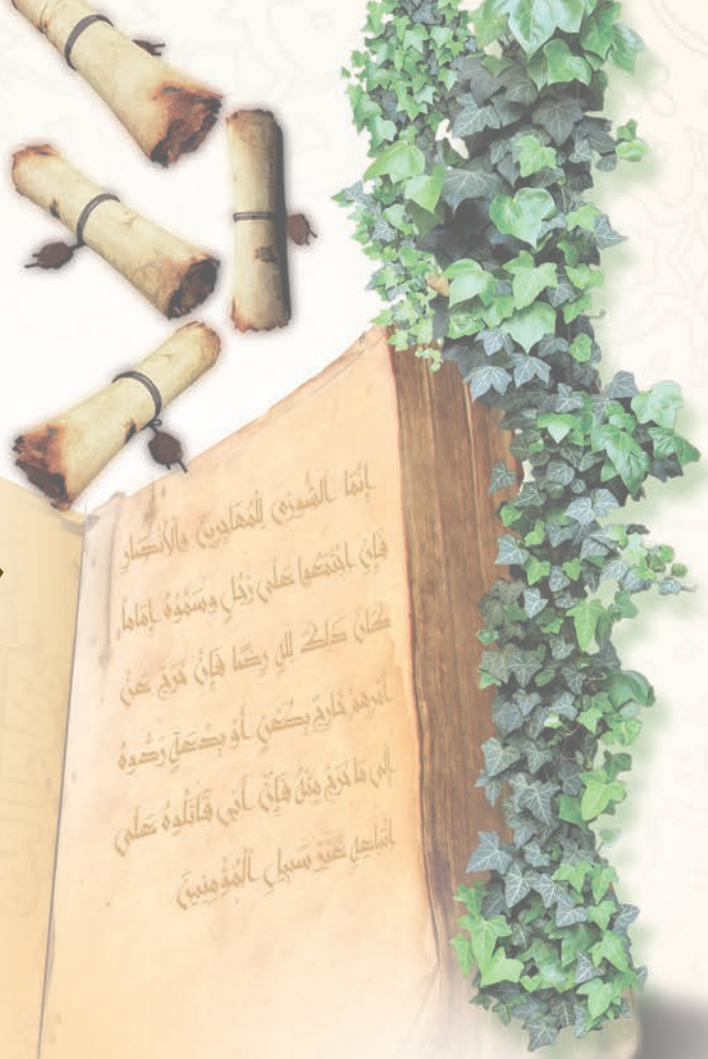 إنَّمَا الشُّورَى لِلْمُهَاجِرِينَ وَالْأَنْصَارِ
فَإِنِ اجْتَمَعُوا عَلَى رَجُلٍ وَسَمَّوْهُ إِمَاماً
كَانَ ذَلِكَ لِلَّهِ رِضًا فَإِنْ خَرَجَ عَنْ
أَمْرِهِمْ خَارِجٌ بِطَعْنٍ أَوْ بِدْعَةٍ رَدُّوهُ
إِلَى مَا خَرَجَ مِنْهُ فَإِنْ أَبَى قَاتَلُوهُ عَلَى
اتِّبَاعِهِ غَيْرَ سَبِيلِ الْمُؤْمِنِينَ